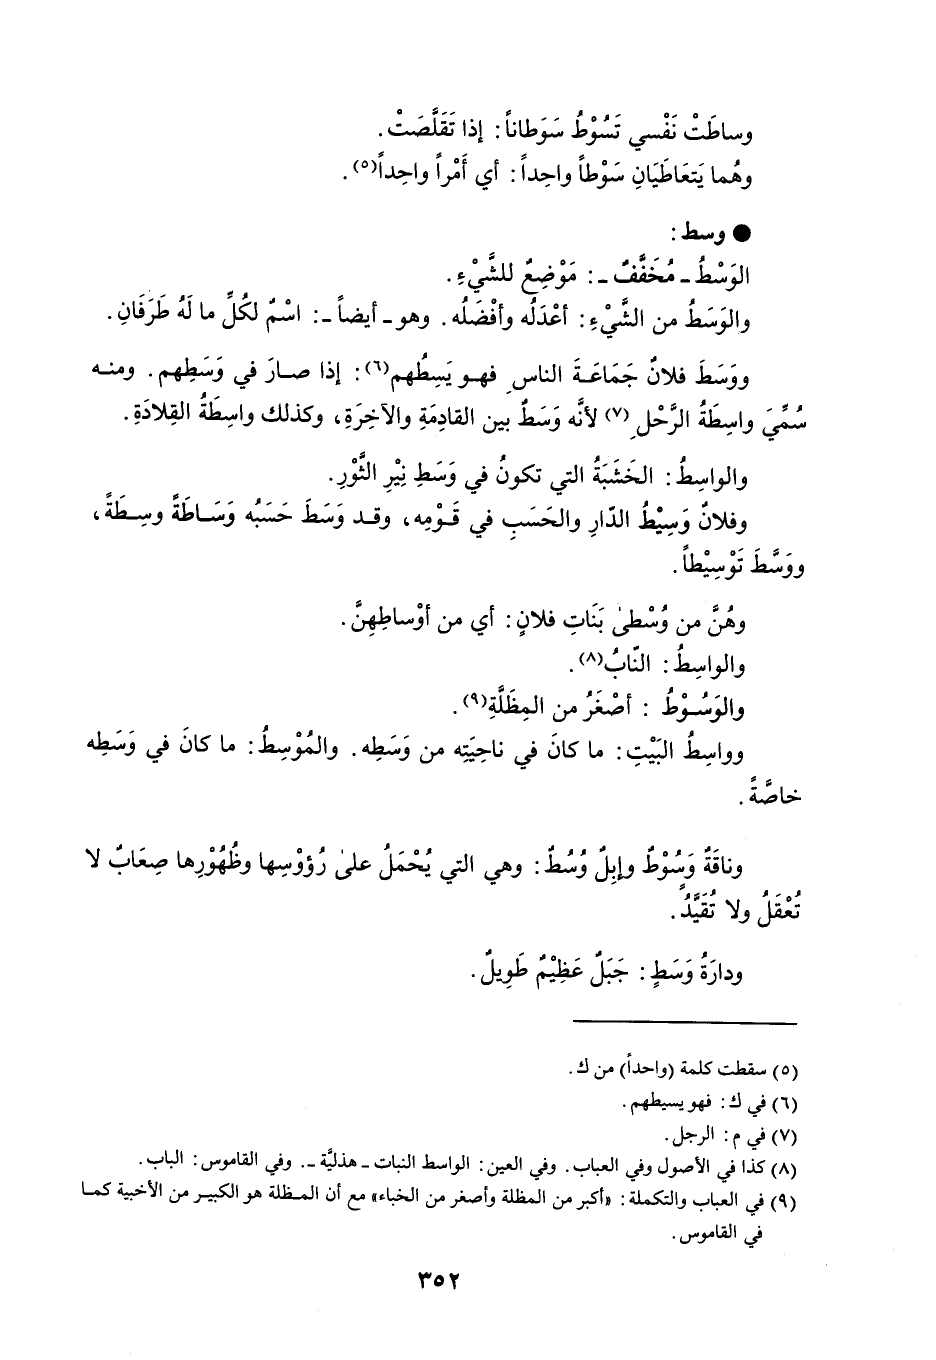 وساطَتْ نَفْسي تَسُوْطُ سَوَطاناً: إذا تَقَلَّصَتْ.
وهُما يَتعَاطَيَانِ سَوْطاً واحِداً: أي أَمْراً واحِداً(٥).
● وسط:
الوَسْطُ ـ مُخَفَّفٌ ـ: مَوْضِعٌ للشَّيْءِ.
والوَسَطُ من الشَّيْءِ: أعْدَلُه وأفْضَلُه. وهو ـ أيضاً ـ: اسْمٌ لكُلِّ ما لَهُ طَرَفَانِ.
ووَسَطَ فلانٌ جَمَاعَةَ الناسِ فهو يَسِطُهم(٦): إذا صارَ في وَسَطِهم. ومنه
سُمِّيَ واسِطَةُ الرَّحْلِ(٧) لأنَّه وَسَطٌ بين القادِمَةِ والآخِرَةِ، وكذلك واسِطَةُ القِلادَةِ.
والواسِطُ: الخَشَبَةُ التي تكونُ في وَسَطِ نِيْرِ الثَّوْرِ.
وفلانٌ وَسِيْطُ الدّارِ والحَسَبِ في قَوْمِه، وقد وَسَطَ حَسَبُه وَسَاطَةً وسِطَةً،
ووَسَّطَ تَوْسِيْطاً.
وهُنَّ من وُسْطىٰ بَنَاتِ فلانٍ: أي من أوْساطِهِنَّ.
والواسِطُ: النّابُ(٨).
والوَسُوْطُ : أصْغَرُ من المِظَلَّةِ(٩).
وواسِطُ البَيْتِ: ما كانَ في ناحِيَتِه من وَسَطِه. والمُوْسِطُ: ما كانَ في وَسَطِه
خاصَّةً.
وناقَةٌ وَسُوْطٌ وإبِلٌ وُسُطٌ: وهي التي يُحْمَلُ علىٰ رُؤوْسِها وظُهُوْرِها صِعَابٌ لا
تُعْقَلُ ولا تُقَيَّدُ.
ودارَةُ وَسَطٍ: جَبَلٌ عَظِيْمٌ طَوِيلٌ.
(٥) سقطت كلمة (واحداً) من ك.
(٦) في ك: فهو يسيطهم.
(٧) في م: الرجل.
(٨) كذا في الأصول وفي العباب. وفي العين: الواسط النبات ـ هذليَّة ـ. وفي القاموس: الباب.
(٩) في العباب والتكملة: «أكبر من المظلة وأصغر من الخباء» مع أن المظلة هو الكبير من الأخبية كما
في القاموس.
٣٥٢